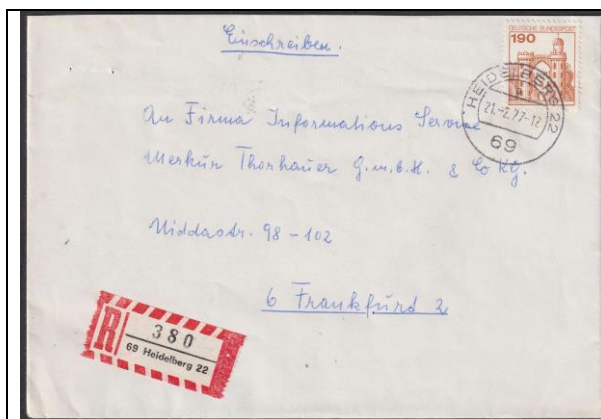 Einschreiben.
DEUTSCHE BUNDESPOST
190
HEIDELBERG 22
21.-2.77-12
69
An Firma Informations Service
Merkur Thorhauer G.m.b.H. & Co KG.
Niddastr. 98-102
6 Frankfurd 2
R
380
69 Heidelberg 22